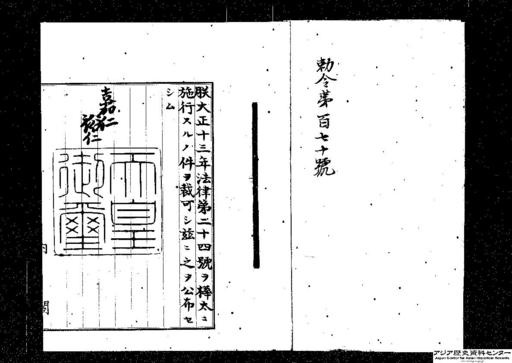 勅令第百七十號
朕大正十三年法律第二十四號ヲ樺太ニ
施行スルノ件ヲ裁可シ茲ニ之ヲ公布セ
シム
嘉仁
裕仁
天皇
御璽
内
閣
アジア歴史資料センター
Japan Center for Asian Historical Records